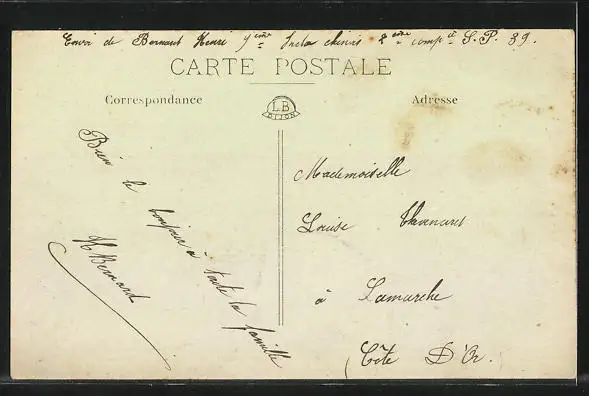 Envoi de Bernard Henri 9ème 2ème compie S. P. 39.
CARTE POSTALE
Correspondance
LB
DIJON
Adresse
Bien le bonjour à toute la famille
H Bernard
Mademoiselle
Louise
à Lamarche
(Côte D'Or.)